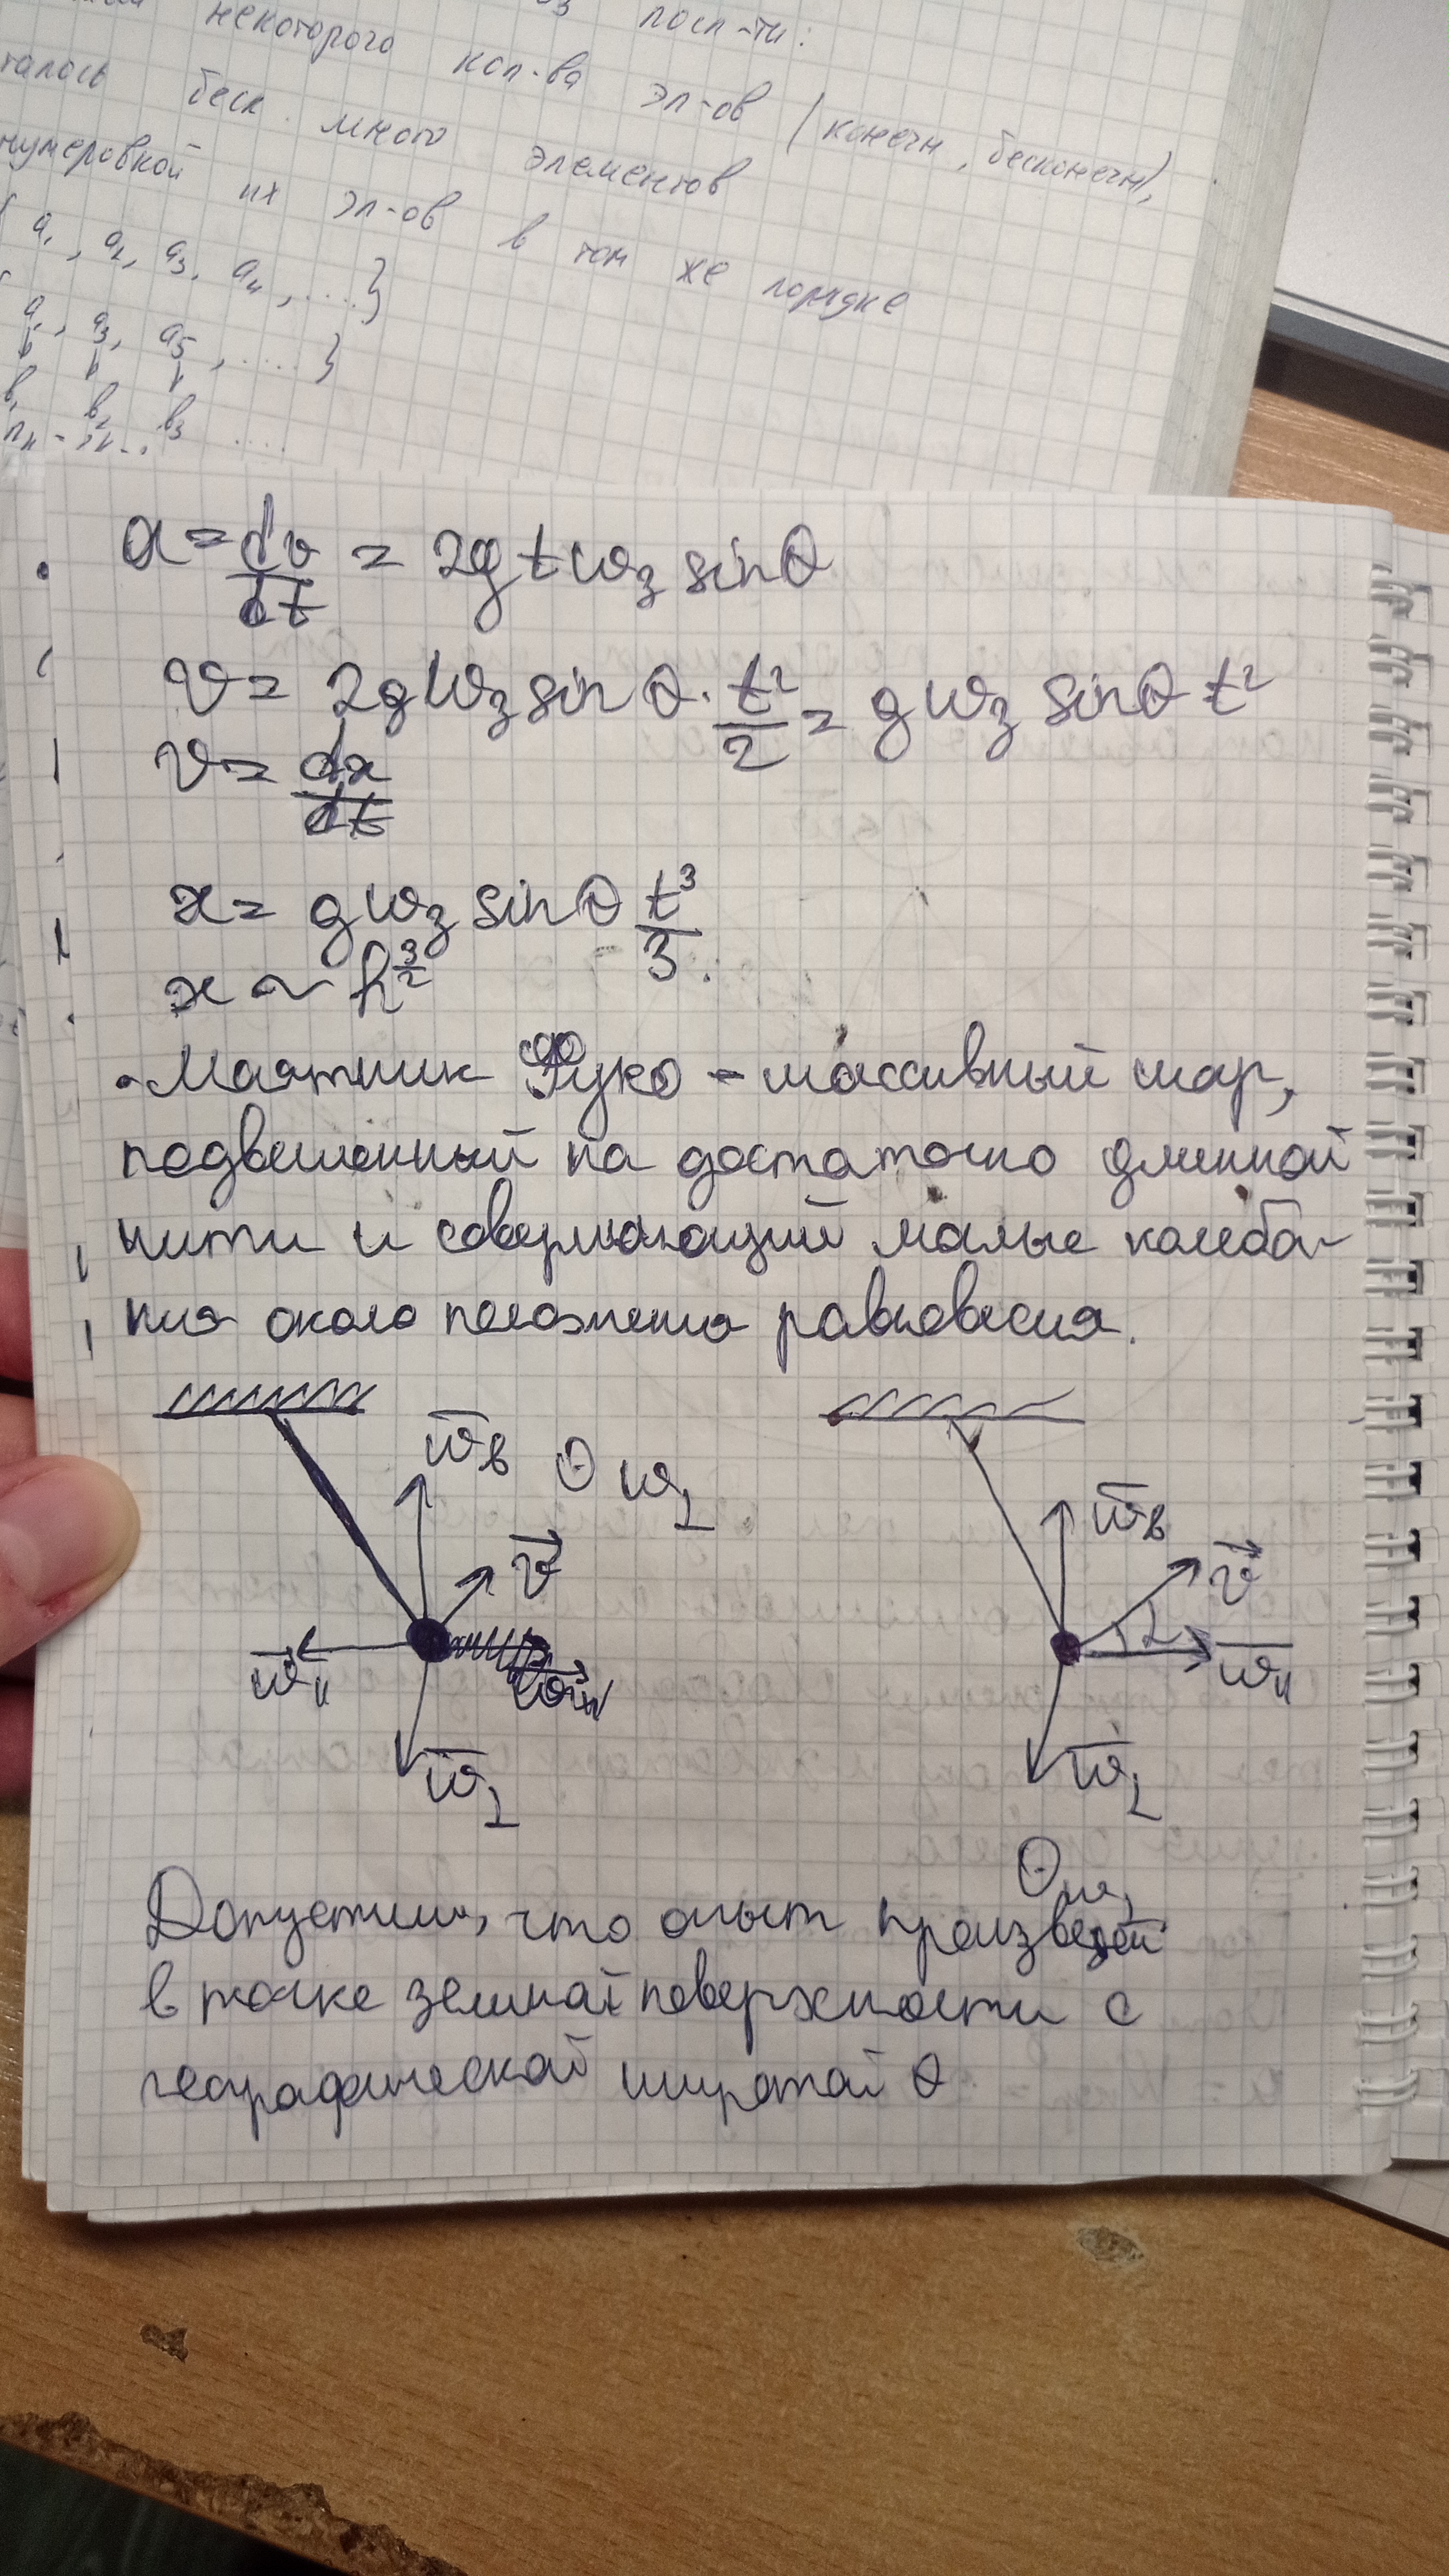 некоторого кол-ва эл-ов (конечн, бесконечн),
посл-ти:
талось беск. много элементов
нумеровкой их эл-ов в том же порядке
{ a₁, a₂, a₃, a₄, ....}
a₁, a₃, a₅, .... }
в₁ в₂ в₃ ....
a = dv/dt = 2gtω₃ sinθ
v = 2gω₃ sinθ · t²/2 = gω₃ sinθ t²
v = dx/dt
x = gω₃ sinθ t³/3
x ~ h^(3/2)
• Маятник Фуко - массивный шар,
подвешенный на достаточно длинной
нити и совершающий малые колеба-
ния около положения равновесия.
ω_в θ ω_⊥
v
ω_॥
ω_⊥
ω_в
v
α
ω_॥
ω_⊥
θ
Допустим, что опыт произведен
в точке земной поверхности с
географической широтой θ